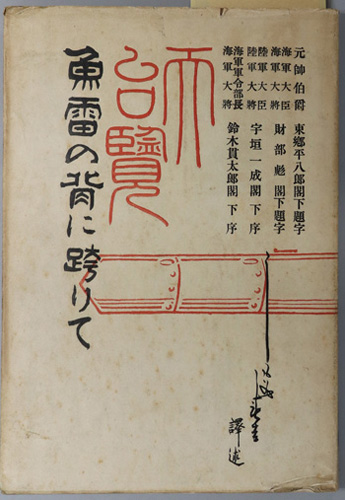 元帥伯爵 東郷平八郎閣下題字
海軍大臣
海軍大將 財部彪閣下題字
陸軍大臣
陸軍大將 宇垣一成閣下序
海軍軍令部長
海軍大將 鈴木貫太郎閣下序
天
台覽
魚雷の背に跨りて
譯述